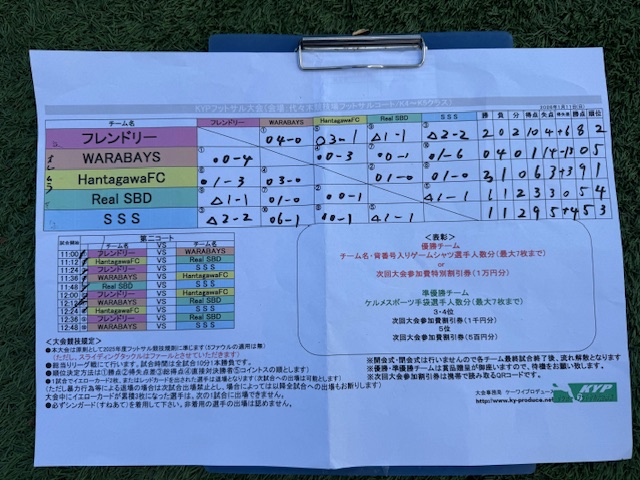 KYPフットサル大会
チーム名 フレンドリー WARABAYS HantagawaFC Real SBD SSS 勝 負 分 得点 失点 勝点 順位
フレンドリー ○4-0 ○3-1 △1-1 △2-2 2 0 2 10 4 +6 8 2
WARABAYS 0-4 0-3 0-1 1-6 0 4 0 1 14 -13 0 5
HantagawaFC 1-3 ○3-0 ○1-0 ○1-0 3 1 0 6 3 +3 9 1
Real SBD △1-1 ○1-0 0-1 △1-1 1 1 2 3 3 0 5 4
SSS △2-2 ○6-1 0-1 △1-1 1 1 2 9 5 +4 5 3
第二コート
試合開始 チーム名 VS チーム名
11:00 フレンドリー VS WARABAYS
11:12 HantagawaFC VS Real SBD
11:24 フレンドリー VS SSS
11:36 WARABAYS VS HantagawaFC
11:48 Real SBD VS SSS
12:00 フレンドリー VS HantagawaFC
12:12 WARABAYS VS Real SBD
12:24 HantagawaFC VS SSS
12:36 フレンドリー VS Real SBD
12:48 WARABAYS VS SSS
<表彰>
優勝チーム
チーム名・背番号入りゲームシャツ選手人数分(最大7枚まで)
or
次回大会参加費特別割引券(1万円分)
準優勝チーム
ケルメスポーツ手袋選手人数分(最大7枚まで)
3・4位
次回大会参加費割引券(1千円分)
5位
次回大会参加費割引券(5百円分)
<大会競技規定>
●本大会は原則として2025年度フットサル競技規則に準じます(5ファウルの適用は無)
(ただし、スライディングタックルはファールとさせていただきます)
●総当りリーグ戦にて行います。試合時間は全試合10分1本勝負です。
●順位決定方法は①勝点②得失点差③総得点④直接対決勝者⑤コイントスの順とします)
●1試合でイエローカード2枚、またはレッドカードを出された選手は退場となります(次試合への出場は可能とします)
(ただし暴力行為等による退場の場合は次試合出場禁止とし、場合によっては以降全試合への出場もお断りします)
大会中にイエローカードが累積3枚になった選手は、次の1試合に出場できません。
●必ずシンガード(すねあて)を着用して下さい。非着用の選手の出場は認めません。
※開会式・閉会式は行いませんので各チーム最終試合終了後、流れ解散となります
※優勝・準優勝チームは賞品贈呈が御座いますので、待機をお願い致します。
※次回大会参加割引券は携帯で読み取るQRコードです。
大会事務局 ケーワイプロデュース
http://www.ky-produce.net
KYP